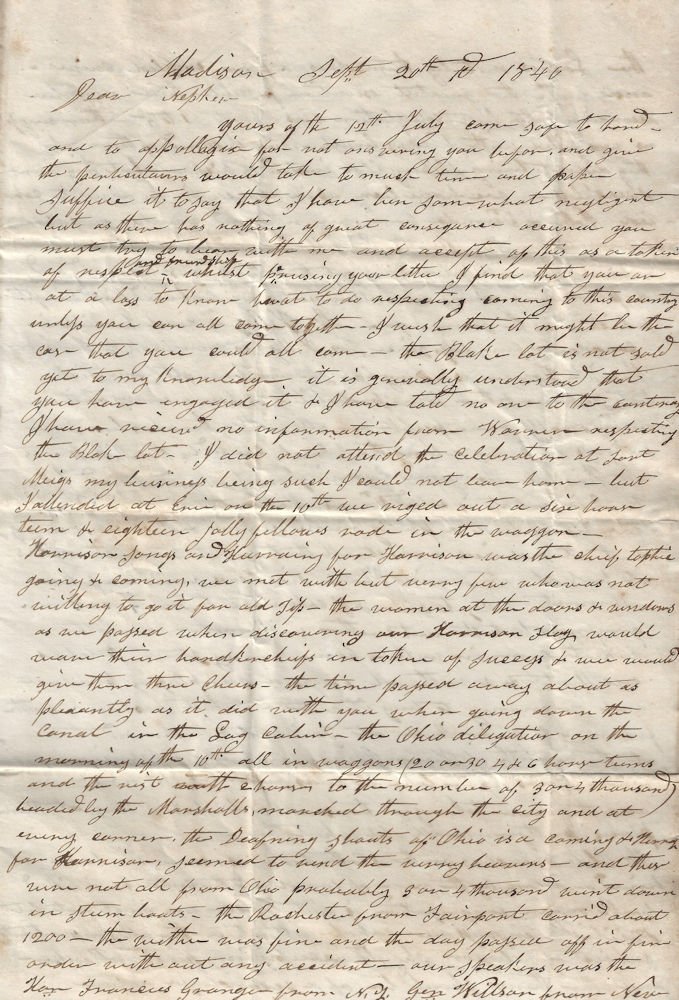 Madison Sept 20th AD 1840
Dear Nephew
yours of the 12th July came safe to hand -
and to appollogix for not answering you befor, and give
the perticulars would take to much time and paper
suffice it to say that I have ben somewhat negligent
but as there has nothing of great consequence accured you
must try to bear with me and accept of this as a token
of respect and friendship - whilst perusing your letter I find that you are
at a loss to know what to do respecting coming to this country
unless you can all come together - I wish that it might be the
case that you could all come - the Blake lot is not sold
yet to my knowledge it is generally understood that
you have engaged it & I have told no one to the contrary
I have received no information from Warren respecting
the Blake lot - I did not attend the Celebration at Fort
Meigs my business being such I could not leave home - but
I attended at Erie on the 10th we riged out a six horse
team & eighteen Jolly fellows rode in the waggon -
Harrison songs and Hurraing for Harrison was the chief tophic
going & coming, we met with but verry few who was not
willing to go it for old Tip - the women at the doors & windows
as we passed when discovering our Harrison Flag would
wave their handkerchiefs in token of success & we would
give them three cheers - the time passed away about as
pleasantly as it did with you when going down the
Canal in the Log Cabin - the Ohio deligation on the
morning of the 10th all in waggons (20 or 30 4 & 6 horse teams
and the rest 2 horses to the number of 3 or 4 thousand)
headed by the Marshalls, marched through the city and at
every corner, the Deafning shouts of Ohio is a coming & Hurra
for Harrison, seemed to rend the verry heavens - and these
were not all from Ohio probably 3 or 4 thousand went down
in steem boats - the Rochester from Fairport carrid about
1200 - the wether was fine and the day passed off in fine
order with out any accident - our speakers was the
Hon Francies Granger from N.Y. Gen Willson from New